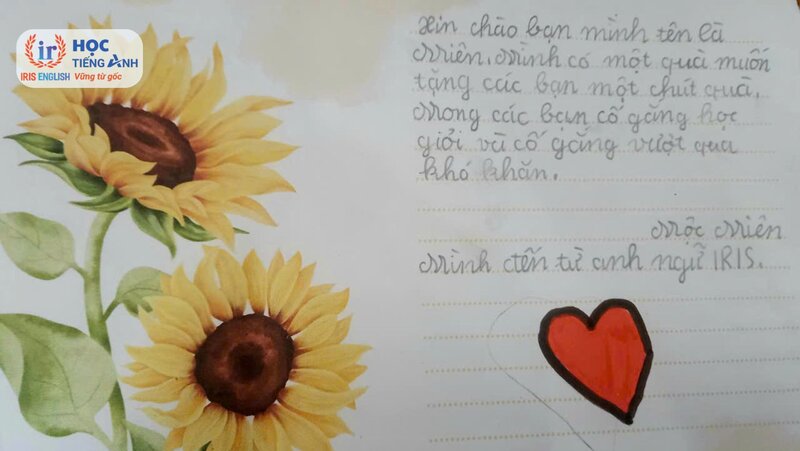 ir
HỌC
TIẾNG ANH
IRIS ENGLISH Vững từ gốc
xin chào bạn mình tên là
Miên. Mình có một quà muốn
tặng các bạn một chút quà,
Mong các bạn cố gắng học
giỏi và cố gắng vượt qua
khó khăn.
Mộc Miên
Mình đến từ anh ngữ IRIS.